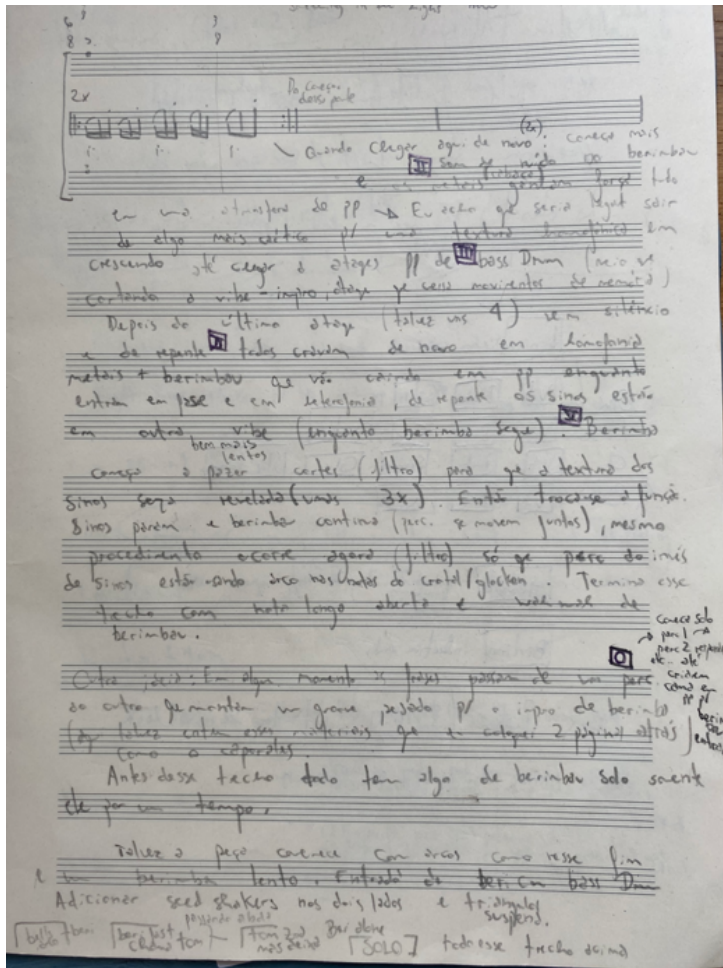 in the Light
6 3
8 8
2x
No começo
dessa parte
(2x)
Quando chegar aqui de novo: começa mais
II Som de ruído no berimbau
(cabaça)
e os metais ganham força tudo
em uma atmosfera de pp → Eu acho que seria legal sair
de algo mais caótico p/ uma textura homofônica em
crescendo até chegar a ataques ff de III bass Drum (meio que
cortando a vibe - impro, ataque que seria movimentos de memória)
Depois do último ataque (talvez uns 4) vem silêncio
e de repente IV todos cravam de novo em homofonia
metais + berimbau que vão caindo em pp enquanto
entram em fase e em heterofonia, de repente os sinos estão
em outra vibe (enquanto berimba segue). V Berimba
bem mais
lentos
começa a fazer cortes (filtro) para que a textura dos
sinos seja revelada (umas 3x). Então troca-se a função.
Sinos param e berimbau continua (perc. se movem juntos), mesmo
procedimento ocorre agora (filtro) só que perc ao invés
de sinos estão usando arco nas bordas do crotal/glocken. Termina esse
trecho com nota longa aberta e de
berimbau.
começa solo
perc 1
perc 2 responde
etc.. até
criarem
como em
pp p/
berim
bau
entrar
O
Outra ideia: Em algum momento as frases passam de um perc
ao outro que montam um groove pesado p/ o impro de berimba
(aqui talvez entrem esses materiais que eu coloquei 2 páginas atrás)
como o caparates.
Antes desse trecho todo tem algo de berimbau solo somente
ele por um tempo.
Talvez a peça comece com arcos como nesse fim
e um berimbau lento. Entrada de beri com bass Drum
Adicionar seed shakers nos dois lados e triângulos
suspend.
bass + beri beri just tom tom 2nd Beri alone
mais [SOLO] todo esse trecho acima